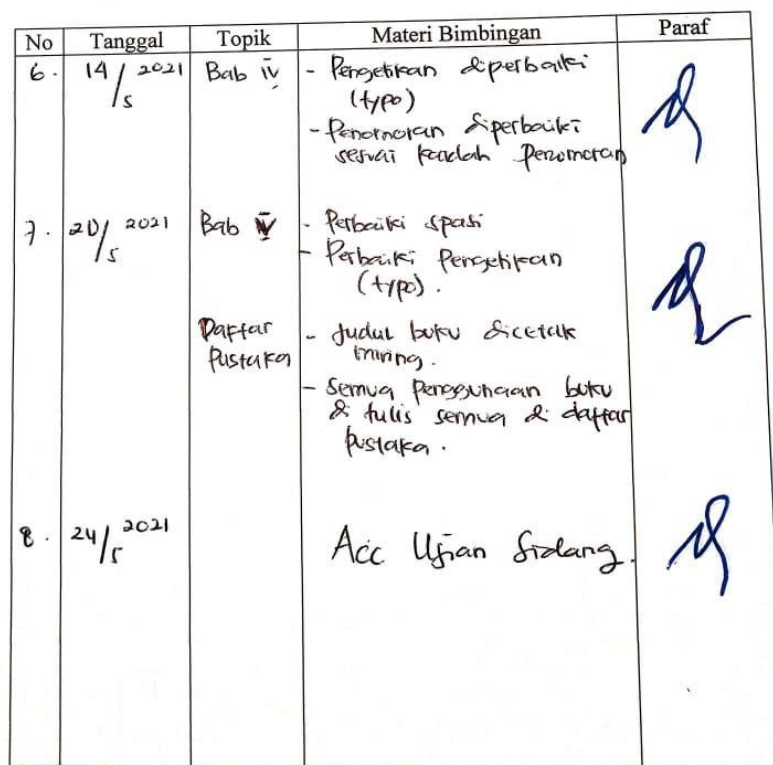 No Tanggal Topik Materi Bimbingan Paraf
6. 14/5 2021 Bab IV - Pengetikan diperbaiki
(typo)
- Penomoran diperbaiki
sesuai kaidah Penomoran
7. 20/5 2021 Bab V - Perbaiki spasi
- Perbaiki Pengetikan
(typo).
Daftar - Judul buku dicetak
Pustaka miring.
- Semua Penggunaan buku
di tulis semua di daftar
pustaka.
8. 24/5 2021 Acc Ujian Sidang.